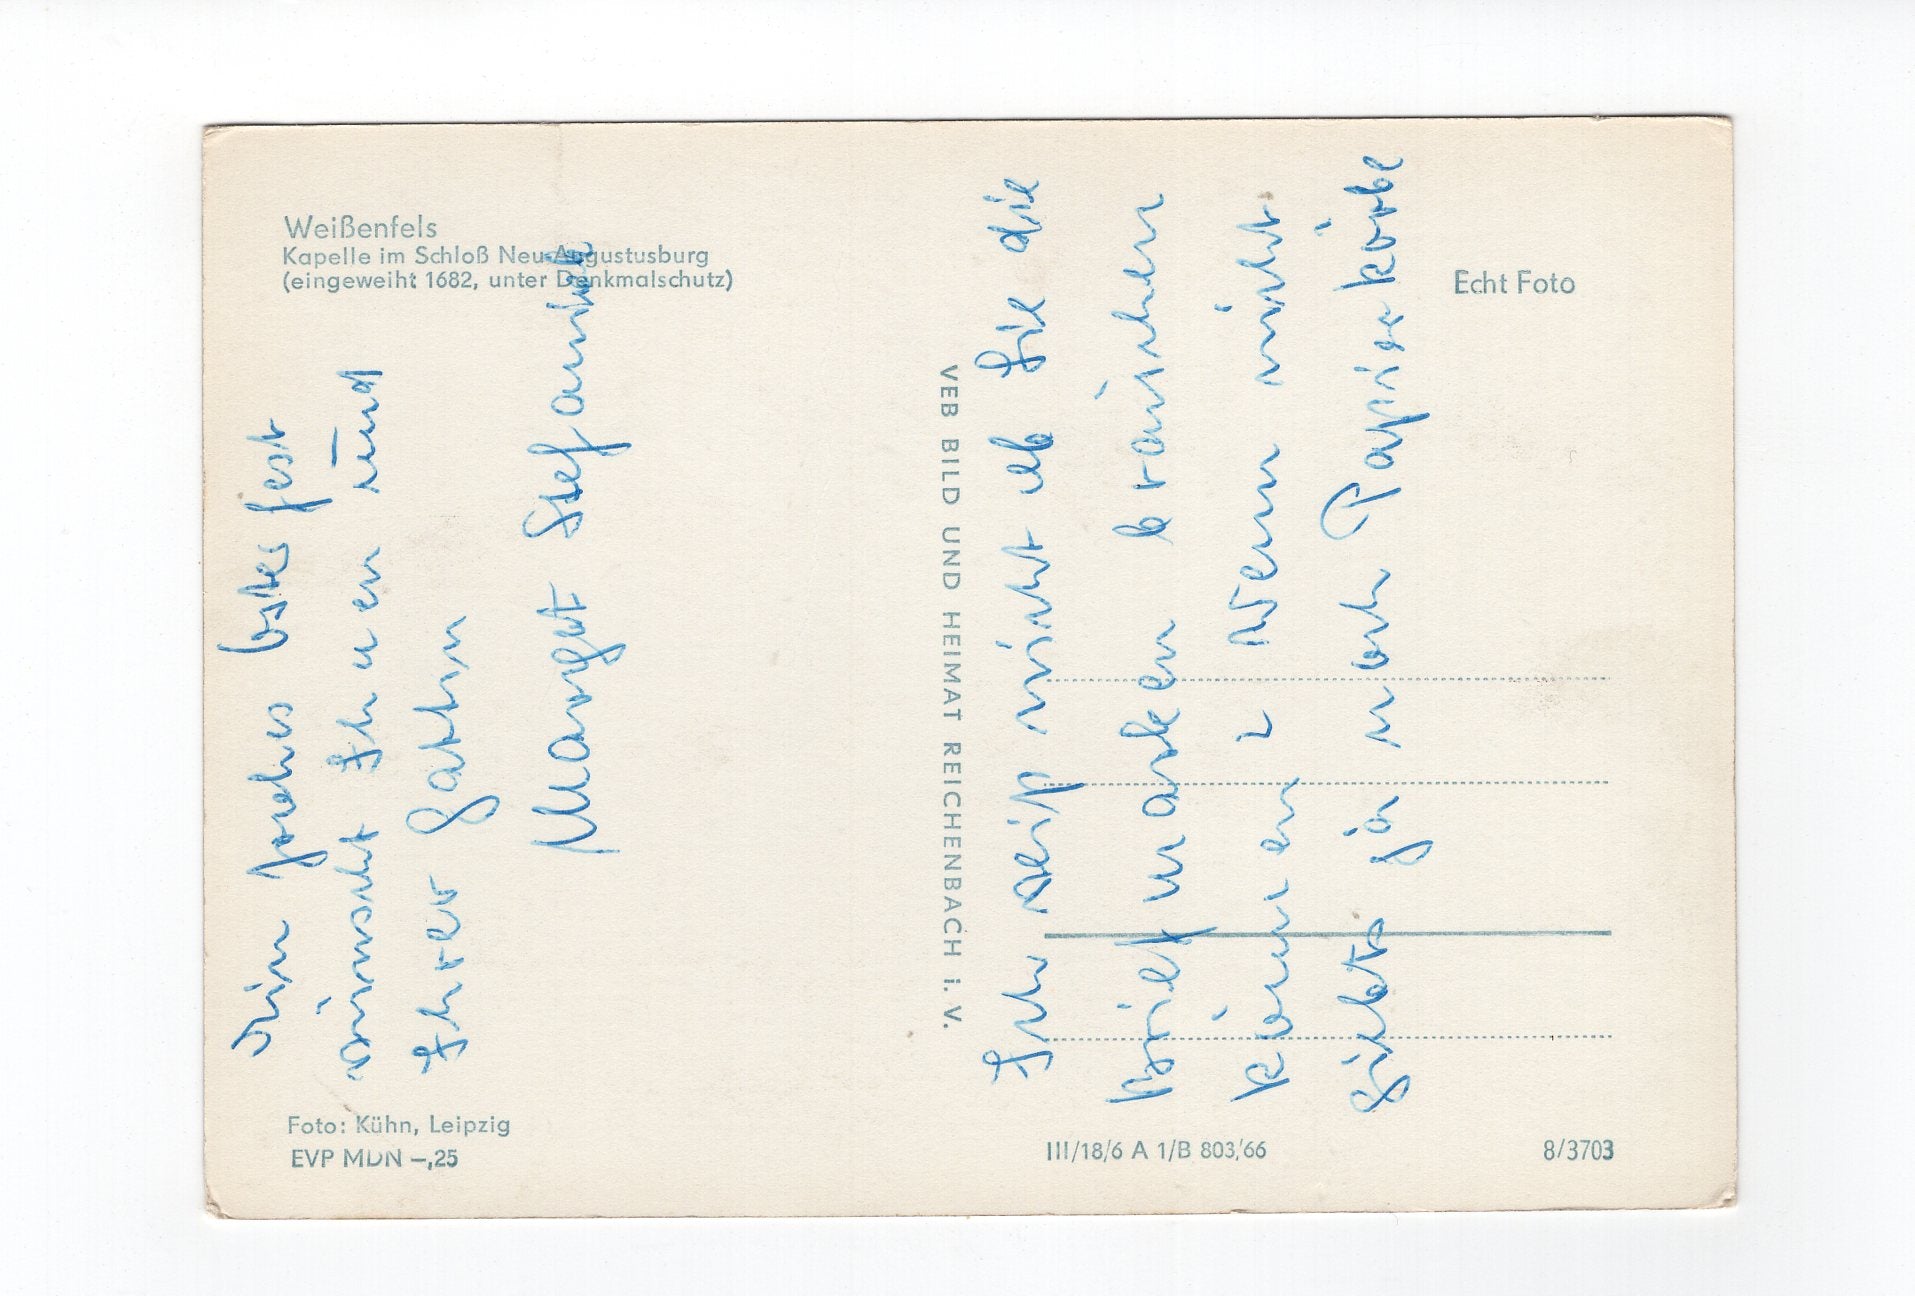 Weißenfels
Kapelle im Schloß Neu-Augustusburg
(eingeweiht 1682, unter Denkmalschutz)
Echt Foto
Ein frohes Osterfest
wünscht Ihnen und
Ihrer Gattin
Margret
VEB BILD UND HEIMAT REICHENBACH i. V.
Ich weiß nicht ob Sie die
Briefmarken brauchen
können. Wenn nicht
gibts ja noch Papierkörbe
Foto: Kühn, Leipzig
EVP MDN –,25
III/18/6 A 1/B 803/66
8/3703